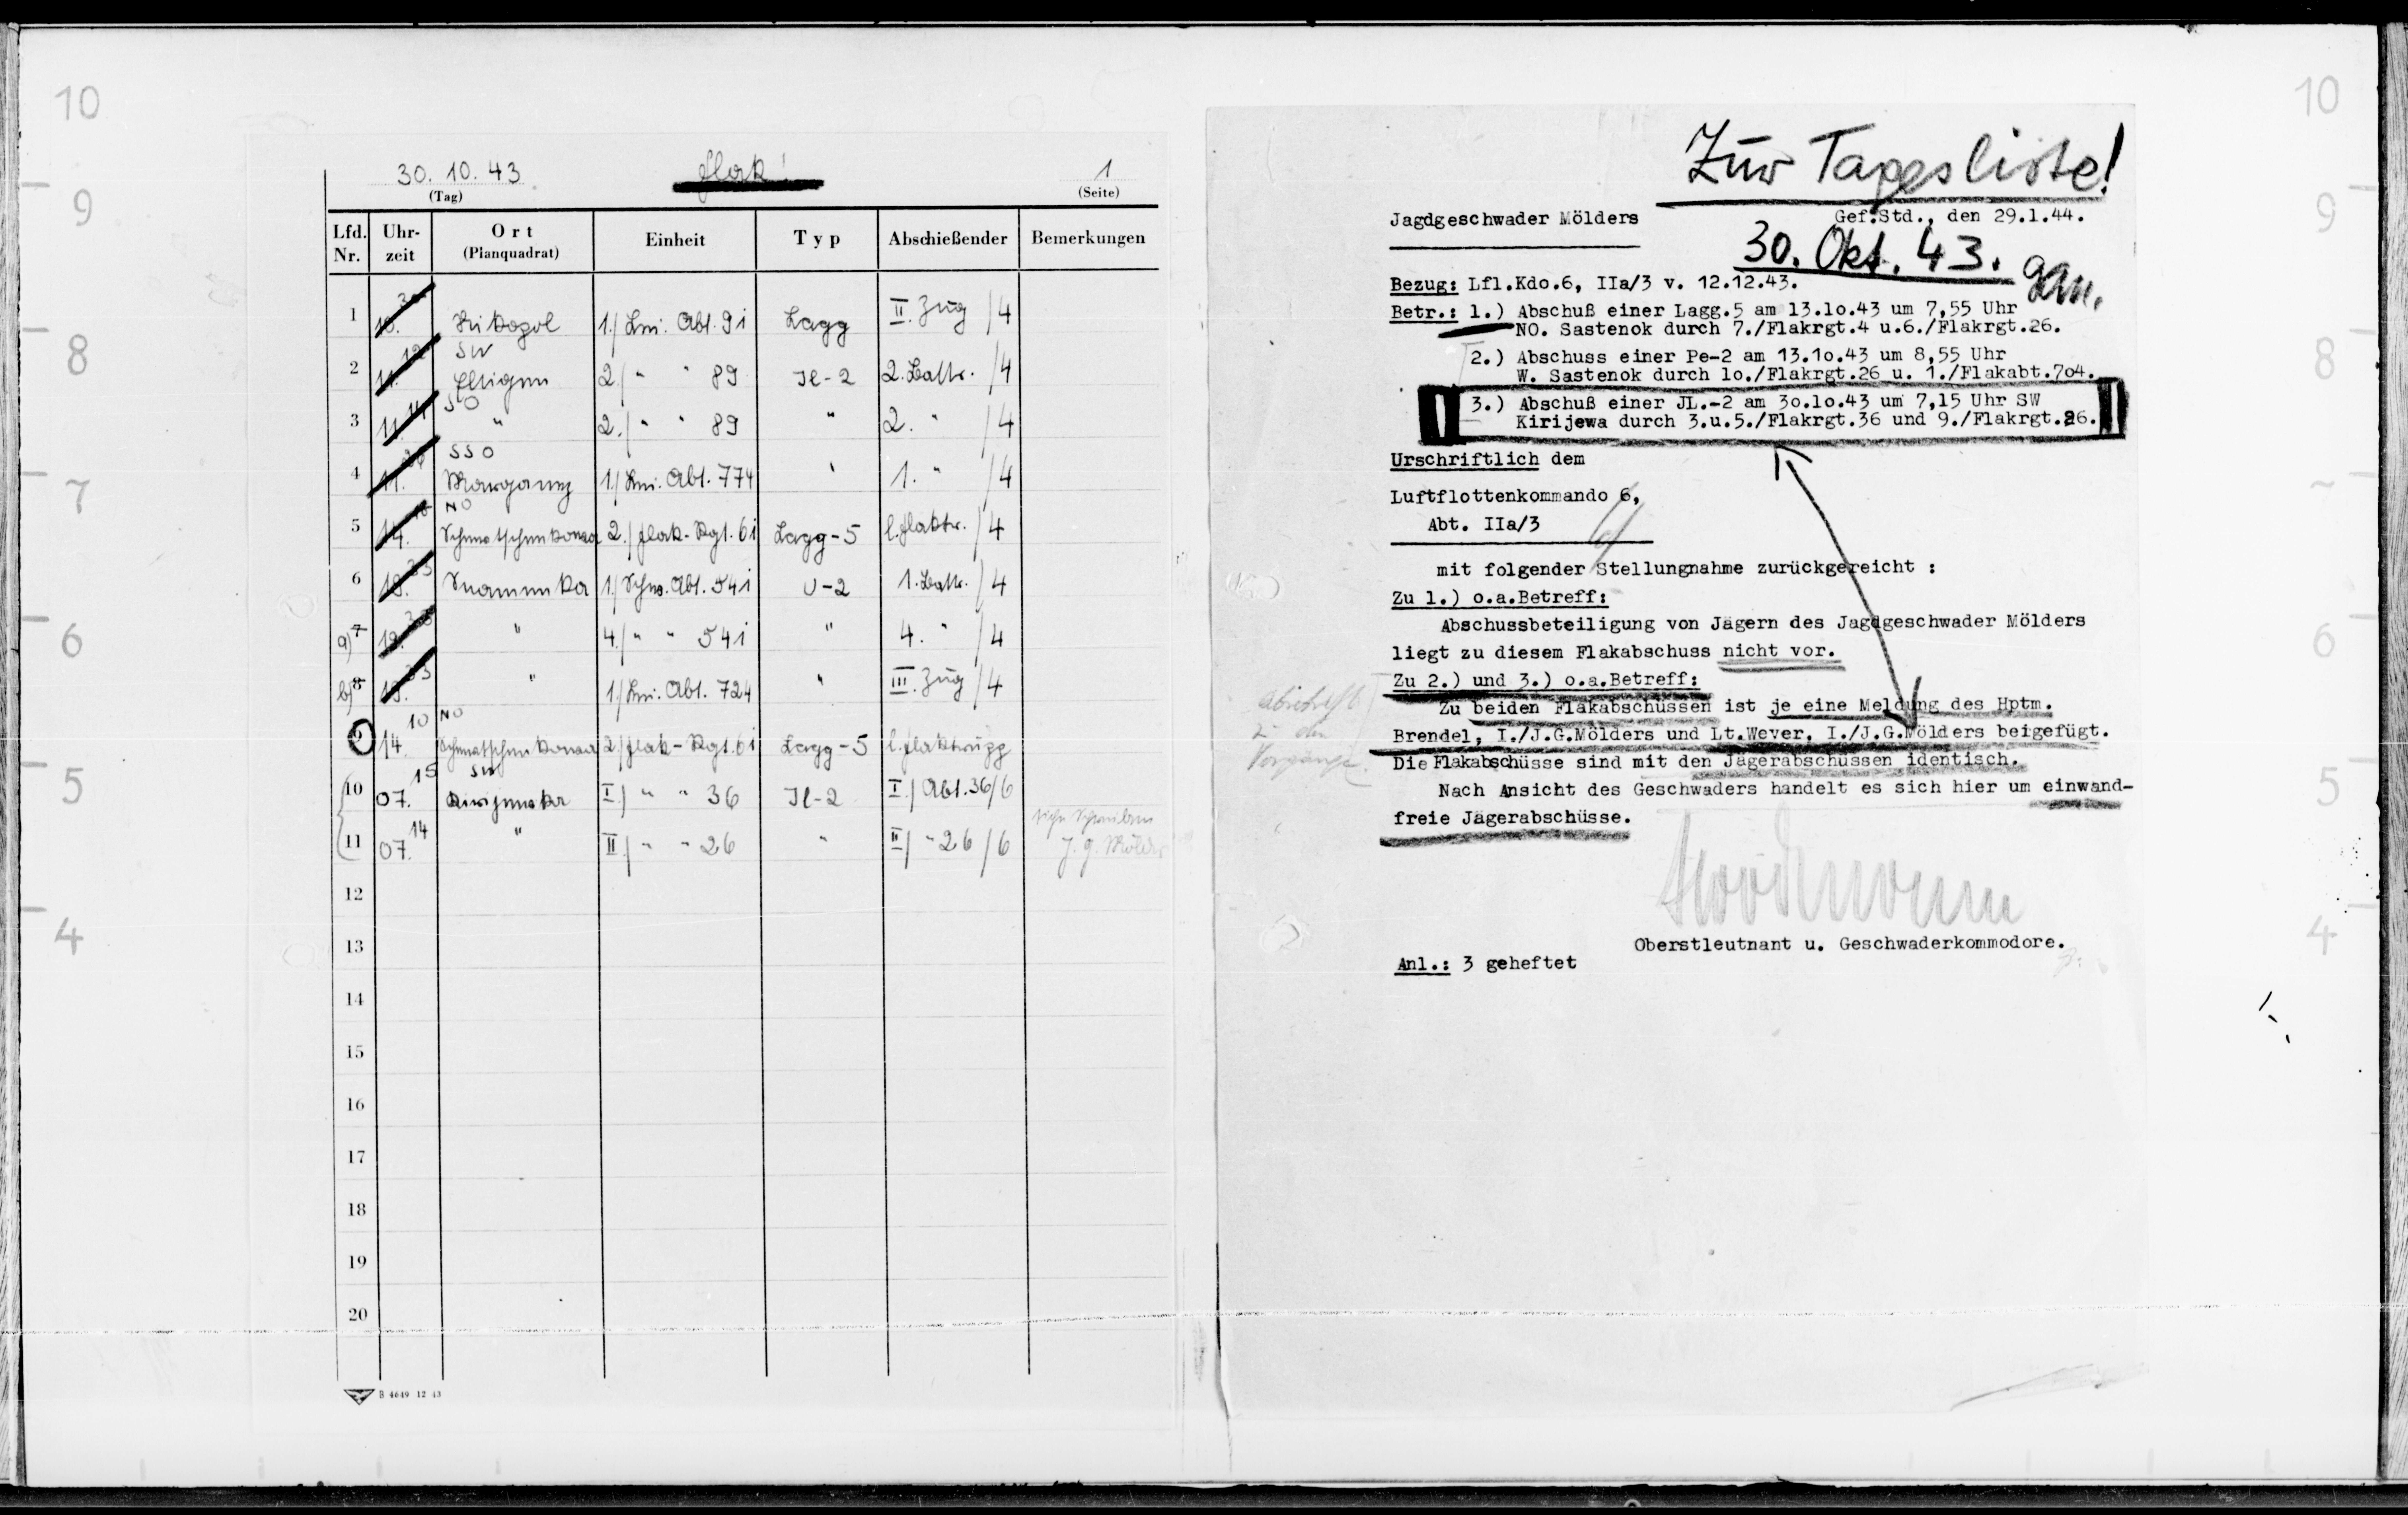 10
9
8
7
6
5
4
30. 10. 43
Flak!
1
(Tag)
(Seite)
Lfd. Nr. Uhr-zeit Ort (Planquadrat) Einheit Typ Abschießender Bemerkungen
1 10. Nikopol 1./ Lei. Abt. 91 Lagg II. Zug /4
SW
2 11. Eltigen 2./ " " 89 Il-2 2. Battr. /4
SO
3 11. " 2./ " " 89 " 2. " /4
SSO
4 11. Marganez 1./ Lei. Abt. 774 " 1. " /4
NO
5 14. 2./ Flak-Rgt. 61 Lagg-5 /4
6 Snamenka 1./ Schw. Abt. 541 U-2 1. Battr. /4
a) 7 " 4./ " " 541 " 4. " /4
b) 8 " 1./ Lei. Abt. 724 " III. Zug /4
NO
9 14.10 2./ Flak-Rgt. 61 Lagg-5
SW
10 07.15 I./ " " 36 Il-2 I./ Abt. 36/6
11 07.14 " II./ " " 26 " II/ " 26 /6 J.G. Mölders
12
13
14
15
16
17
18
19
20
B 4649 12 43
10
9
8
6
5
4
Zur Tagesliste!
Jagdgeschwader Mölders
Gef.Std., den 29.1.44.
30. Okt. 43.
Bezug: Lfl.Kdo.6, IIa/3 v. 12.12.43.
Betr.: 1.) Abschuß einer Lagg.5 am 13.10.43 um 7,55 Uhr
NO. Sastenok durch 7./Flakrgt.4 u.6./Flakrgt.26.
2.) Abschuss einer Pe-2 am 13.10.43 um 8,55 Uhr
W. Sastenok durch 10./Flakrgt.26 u. 1./Flakabt.704.
3.) Abschuß einer JL.-2 am 30.10.43 um 7,15 Uhr SW
Kirijewa durch 3.u.5./Flakrgt.36 und 9./Flakrgt.26.
Urschriftlich dem
Luftflottenkommando 6,
Abt. IIa/3
mit folgender Stellungnahme zurückgereicht :
Zu 1.) o.a.Betreff:
Abschussbeteiligung von Jägern des Jagdgeschwader Mölders
liegt zu diesem Flakabschuss nicht vor.
Zu 2.) und 3.) o.a.Betreff:
Zu beiden Flakabschüssen ist je eine Meldung des Hptm.
Brendel, I./J.G.Mölders und Lt.Wever, I./J.G.Mölders beigefügt.
Die Flakabschüsse sind mit den Jägerabschüssen identisch.
Nach Ansicht des Geschwaders handelt es sich hier um einwand-
freie Jägerabschüsse.
Oberstleutnant u. Geschwaderkommodore.
Anl.: 3 geheftet